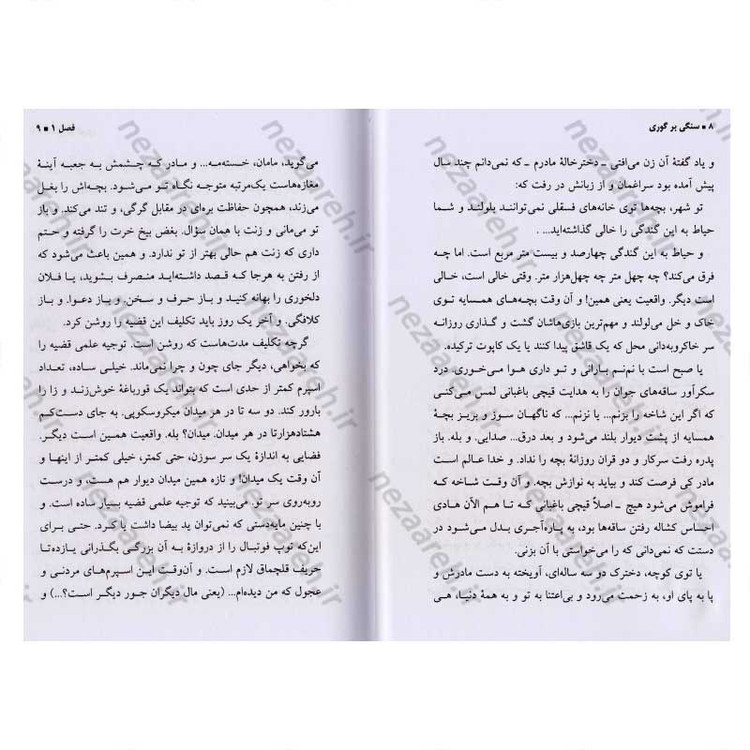 ۸ ■ سنگی بر گوری
و یاد گفتهٔ آن زن می‌افتی ـ دخترخالهٔ مادرم ـ که نمی‌دانم چند سال
پیش آمده بود سراغمان و از زبانش در رفت که:
تو شهر، بچه‌ها توی خانه‌های فسقلی نمی‌تونند بلولند و شما
حیاط به این گندگی را خالی گذاشته‌اید...
و حیاط به این گندگی چهارصد و بیست متر مربع است. اما چه
فرق می‌کند؟ چه چهل متر چه چهل‌هزار متر. وقتی خالی است، خالی
است دیگر. واقعیت یعنی همین! و آن وقت بچه‌های همسایه توی
خاک و خل می‌لولند و مهم‌ترین بازی‌هاشان گشت و گذاری روزانه
سر خاکروبه‌دانی محل که یک قاشق پیدا کنند یا یک کاپوت ترکیده.
یا صبح است با نم‌نم بارانی و تو داری هوا می‌خوری. درد
سکرآور ساقه‌های جوان را به هدایت قیچی باغبانی لمس می‌کنی
که اگر این شاخه را بزنم... یا نزنم... که ناگهان سوز و بریز بچهٔ
همسایه از پشت دیوار بلند می‌شود و بعد درق... صدایی. و بله. باز
پدره رفت سرکار و دو قران روزانهٔ بچه را نداد. و خدا عالم است
مادر کی فرصت کند و بیاید به نوازش بچه. و آن وقت شاخه که
فراموش می‌شود هیچ ـ اصلاً قیچی باغبانی که تا هم الآن هادی
احساس کشاله رفتن ساقه‌ها بود، به پاره‌آجری بدل می‌شود در
دستت که نمی‌دانی که را می‌خواستی با آن بزنی.
یا توی کوچه، دخترک دو سه ساله‌ای، آویخته به دست مادرش و
پا به پای او، به زحمت می‌رود و بی‌اعتنا به تو و به همهٔ دنیا، هی
فصل ۱ ■ ۹
می‌گوید، مامان، خسته‌مه... و مادر که چشمش به جعبه آینهٔ
مغازه‌هاست یک‌مرتبه متوجه نگاه تو می‌شود. بچه‌اش را بغل
می‌زند، همچون حفاظت بره‌ای در مقابل گرگی، و تند می‌کند. و باز
تو می‌مانی و زنت با همان سؤال. بغض بیخ خرت را گرفته و حتم
داری که زنت هم حالی بهتر از تو ندارد. و همین باعث می‌شود که
از رفتن به هرجا که قصد داشته‌اید منصرف بشوید، یا فلان
دلخوری را بهانه کنید و باز حرف و سخن. و باز دعوا. و باز
کلافگی. و آخر یک روز باید تکلیف این قضیه را روشن کرد.
گرچه تکلیف مدت‌هاست که روشن است. توجیه علمی قضیه را
که بخواهی، دیگر جای چون و چرا نمی‌ماند. خیلی ساده، تعداد
اسپرم کمتر از حدی است که بتواند یک قورباغهٔ خوش‌زند و زا را
بارور کند. دو سه تا در هر میدان میکروسکوپی. به جای دست‌کم
هشتادهزارتا در هر میدان. میدان؟ بله. واقعیت همین است دیگر.
فضایی به اندازهٔ یک سر سوزن، حتی کمتر، خیلی کمتر از اینها و
آن وقت یک میدان! و تازه همین میدان دیوار هم هست، و درست
روبه‌روی سر تو. می‌بینید که توجیه علمی قضیه بسیار ساده است. و
با چنین مایه‌دستی که نمی‌توان ید بیضا داشت یا کرد. حتی برای
این‌که توپ فوتبال را از دروازه به آن بزرگی بگذرانی یازده‌تا
حریف قلچماق لازم است. و آن‌وقت این اسپرم‌های مردنی و
عجول که من دیده‌ام... (یعنی مال دیگران جور دیگر است؟...) و
nezaareh.ir
nezaareh.ir
nezaareh.ir
nezaareh.ir
nezaareh.ir
nezaareh.ir